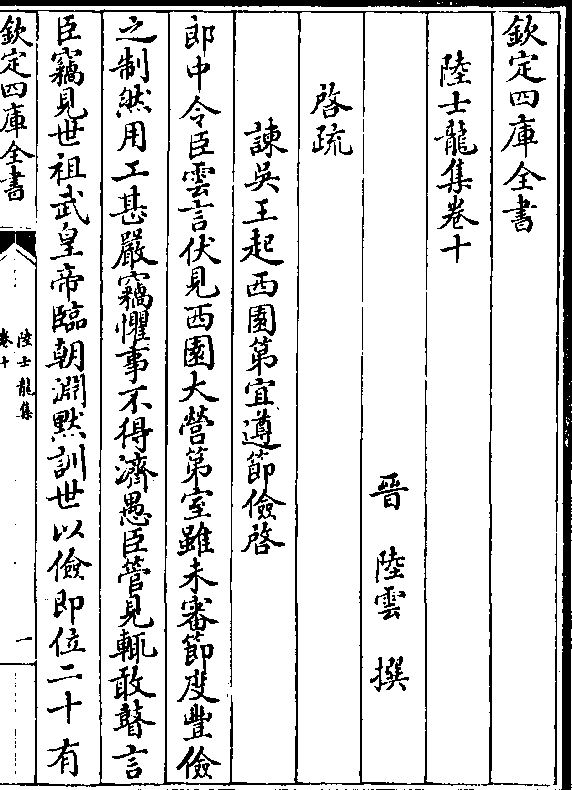 欽定四庫全書
陸士龍集卷十
晉　陸雲　撰
啓疏
諫吳王起西園第宜遵節儉啓
郎中令臣雲言伏見西園大營第室雖未審節度豐儉
之制然用工甚嚴竊懼事不得濟愚臣管見輒敢瞽言
臣竊見世祖武皇帝臨朝淵黙訓世以儉即位二十有
欽定四庫全書
陸士龍集
卷十
一